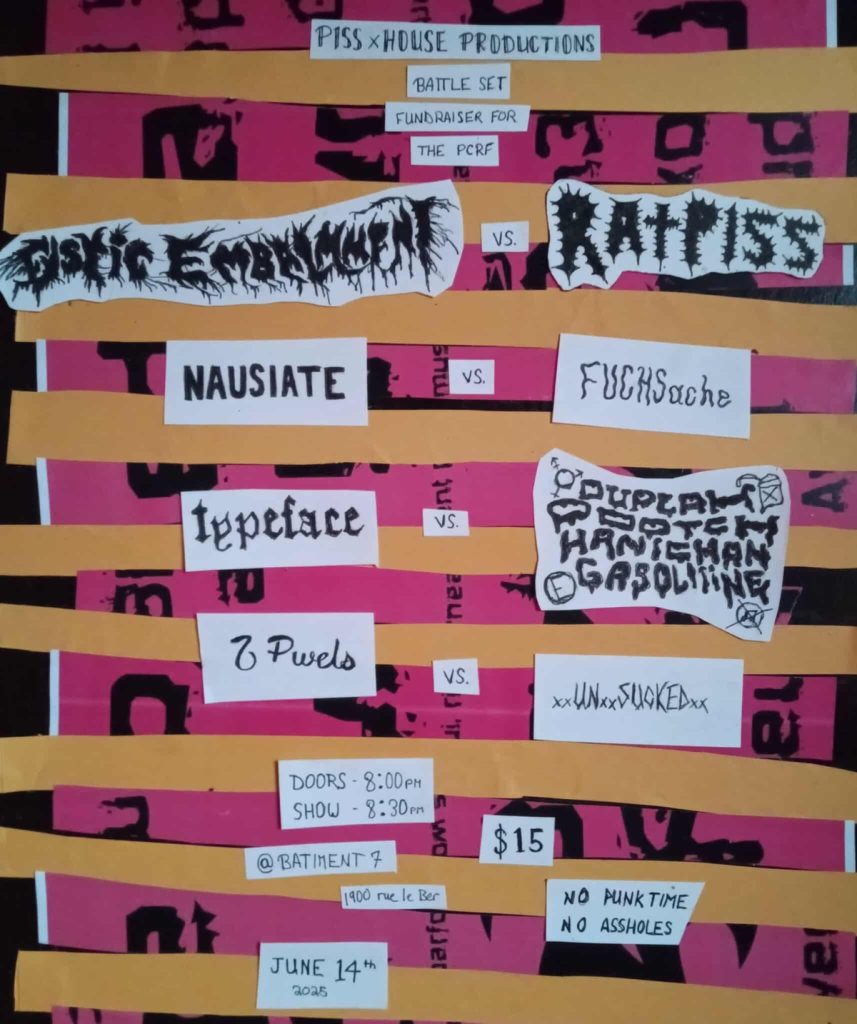 PISS x HOUSE PRODUCTIONS
BATTLE SET
FUNDRAISER FOR
THE PCRF
EMBALMMENT VS. RATPISS
NAUSIATE VS. FUCHSache
typeface VS.
DUPLAIX
POOTCH
HANIGHAN
GASOLINE
Pwels VS. xxUNxxSUCKEDxx
DOORS - 8:00PM
SHOW - 8:30PM
$15
@BATIMENT 7
1900 rue le Ber
NO PUNK TIME
NO ASSHOLES
JUNE 14th
2025